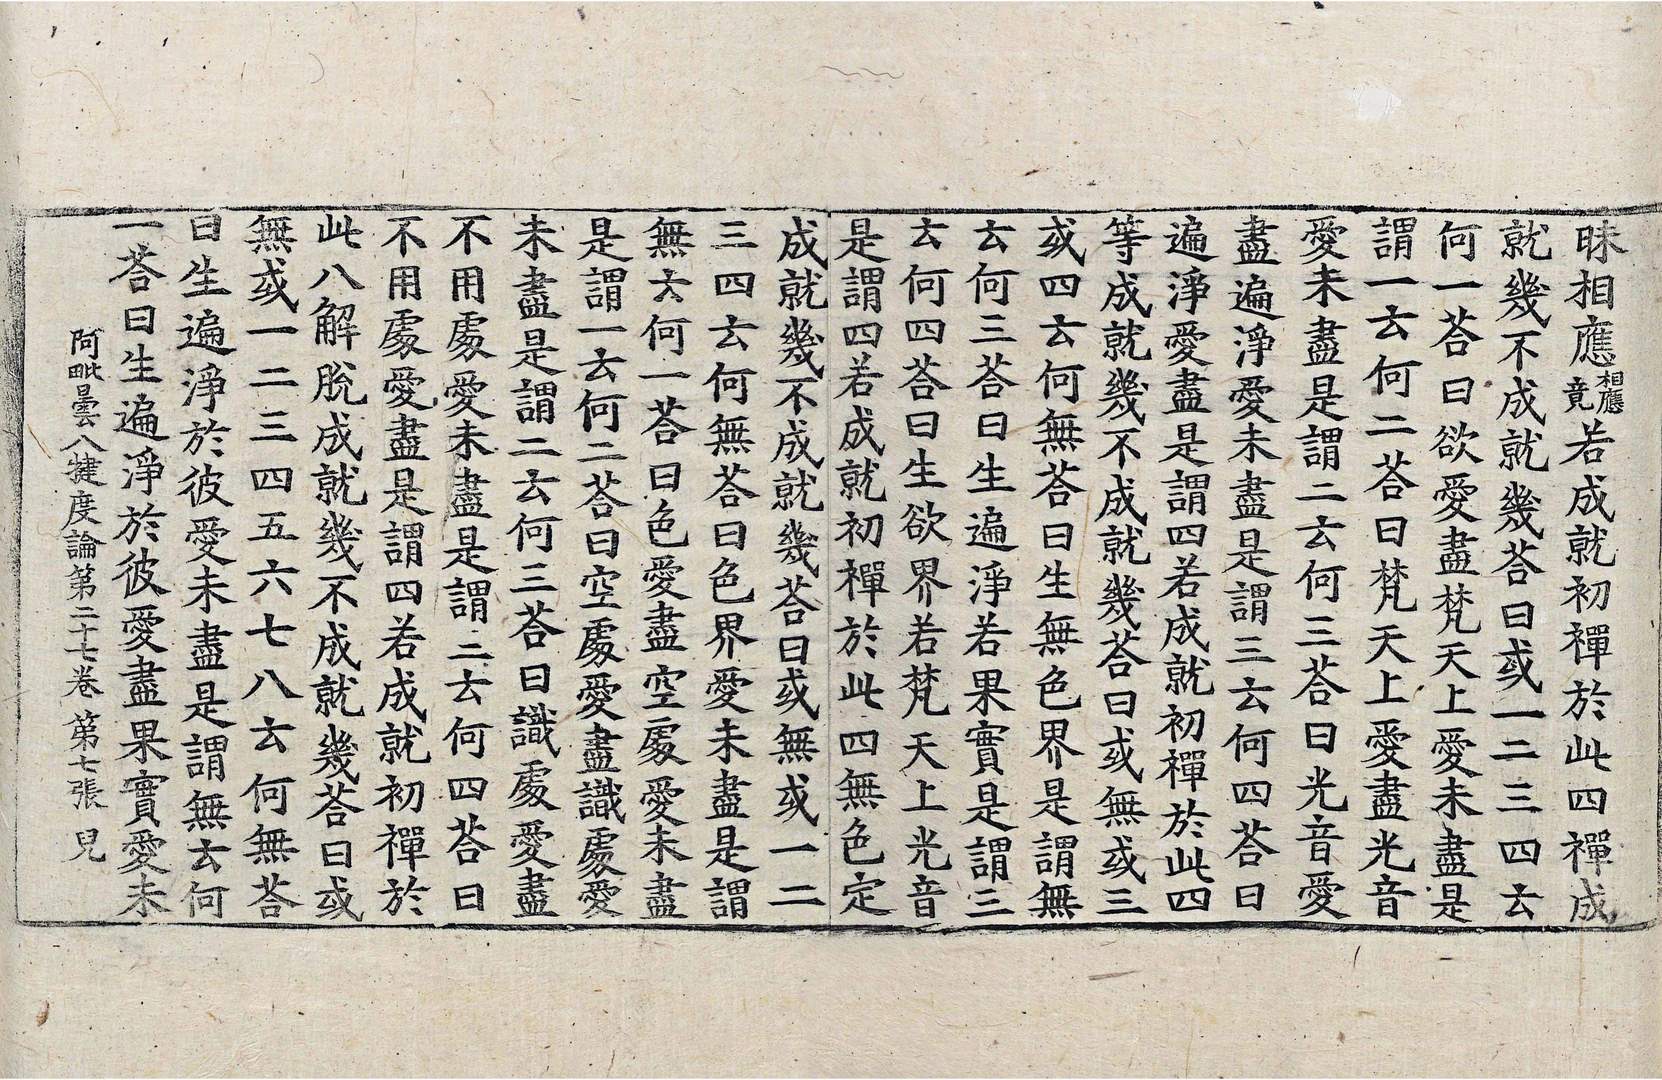 昧相應相應竟若成就初禪於此四禪成
就幾不成就幾荅曰或一二三四云
何一荅曰欲愛盡梵天上愛未盡是
謂一云何二荅曰梵天上愛盡光音
愛未盡是謂二云何三荅曰光音愛
盡遍淨愛未盡是謂三云何四荅曰
遍淨愛盡是謂四若成就初禪於此四
等成就幾不成就幾荅曰或無或三
或四云何無荅曰生無色界是謂無
云何三荅曰生遍淨若果實是謂三
云何四荅曰生欲界若梵天上光音
是謂四若成就初禪於此四無色定
成就幾不成就幾荅曰或無或一二
三四云何無荅曰色界愛未盡是謂
無云何一荅曰色愛盡空處愛未盡
是謂一云何二荅曰空處愛盡識處愛
未盡是謂二云何三荅曰識處愛盡
不用處愛未盡是謂三云何四荅曰
不用處愛盡是謂四若成就初禪於
此八解脫成就幾不成就幾荅曰或
無或一二三四五六七八云何無荅
曰生遍淨於彼愛未盡是謂無云何
一荅曰生遍淨於彼愛盡果實愛未
阿毗曇八犍度論第二十七卷 第七張 兒